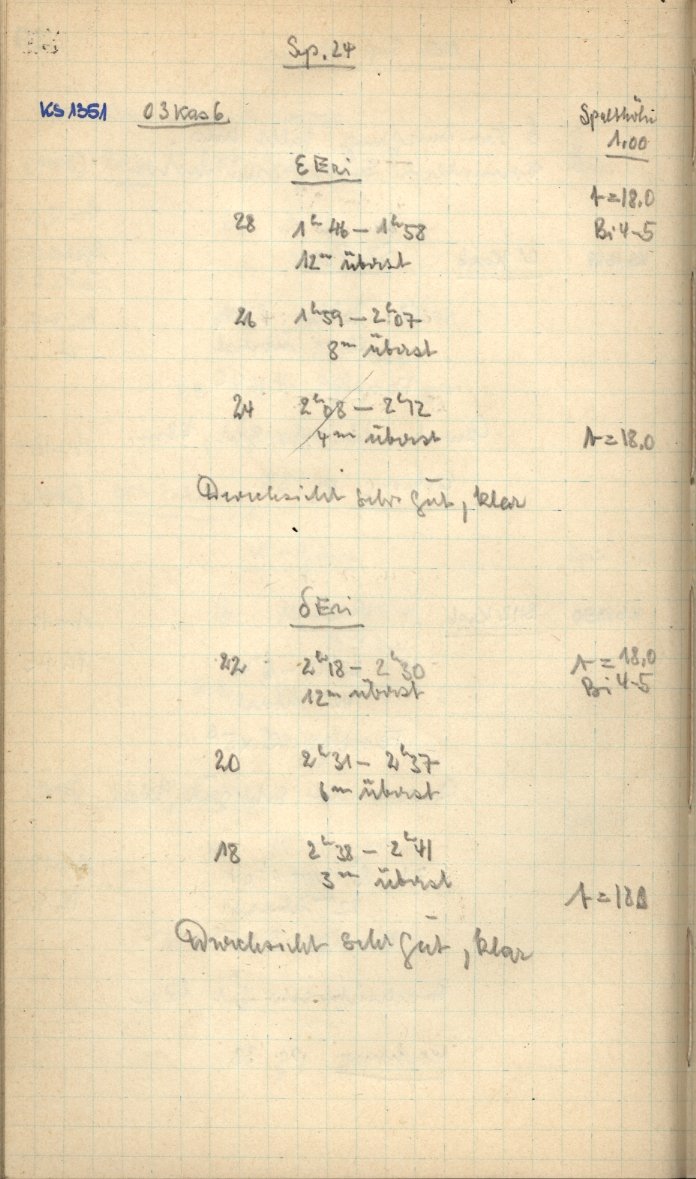 Sp. 24
KS1351 03Kas6 Spalthöhe
1,00
ε Eri
t=18,0
28 1ʰ46 – 1ʰ58 Bi 4-5
12ᵐ überst
26 1ʰ59 – 2ʰ07
8ᵐ überst
24 2ʰ08 – 2ʰ12
4ᵐ überst t=18,0
Durchsicht sehr gut, klar
δ Eri
22 2ʰ18 – 2ʰ30 t = 18,0
12ᵐ überst Bi 4-5
20 2ʰ31 – 2ʰ37
6ᵐ überst
18 2ʰ38 – 2ʰ41
3ᵐ überst
Durchsicht sehr gut, klar